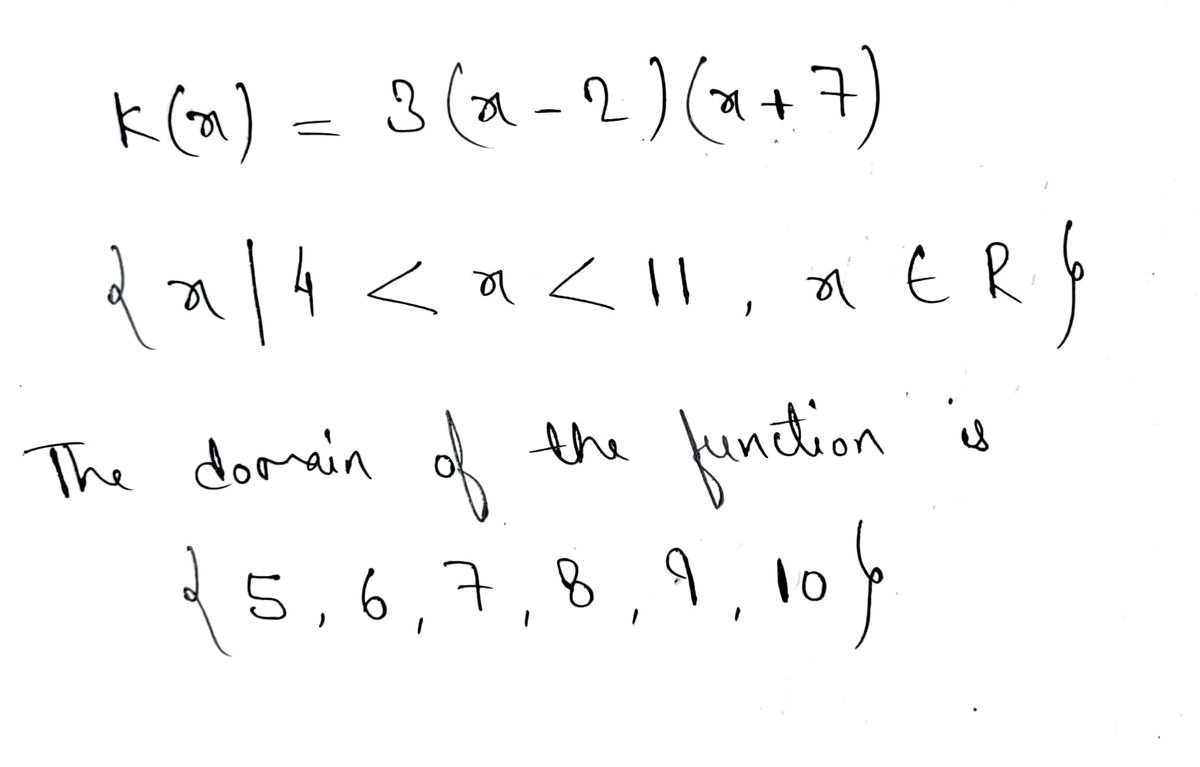 K(x) = 3(x - 2)(x + 7)
{x | 4 < x < 11, x ∈ R}
The domain of the function is
{5, 6, 7, 8, 9, 10}